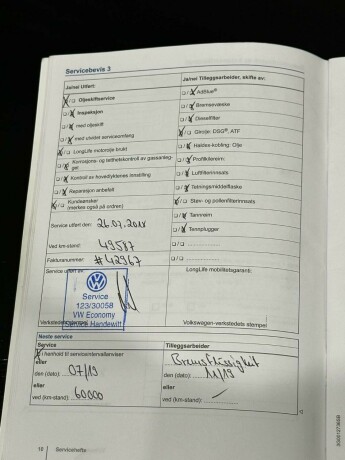 Servicebevis 3
Jamei Utført:
Jamei Tilleggsarbeider, skifte av:
Oljeskiftservice
AdBlue®
Inspeksjon
Bremsevæske
med oljeskift
Dieselfilter
med utvidet serviceomfang
Girolje: DSG®, ATF
LongLife motorolje brukt
Haldex-kobling: Olje
Korrosjons- og tetthetskontroll av gassanlegget
Profilkilereim:
Kontroll av hovedlyktenes innstilling
Luftfilterinnsats
Reparasjon anbefalt
Tetningsmiddelflaske
Kundeønsker
(merkes også på ordren)
Støv- og pollenfilterinnsats
Tannreim
Service utført den: 26.07.2018
Tennplugger
Ved km-stand: 49587
Fakturanummer: #42967
Service utført av:
LongLife mobilitetsgaranti:
Service
123/30058
VW Economy
Service Handewitt
Verkstedets stempel
Volkswagen-verkstedets stempel
Neste service
Service
Tilleggsarbeider
i henhold til serviceintervallanviser
Bremsflüssigkeit
eller
den (dato): 07/19
den (dato): 11/19
eller
eller
ved (km-stand): 60000
ved (km-stand):
18
Servicehefte